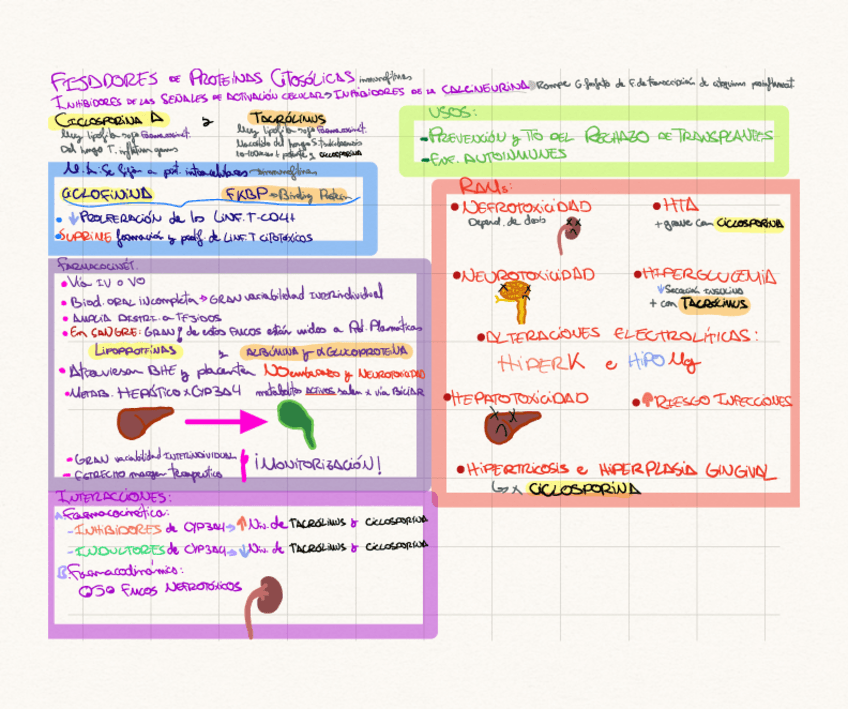 FIJADORES DE PROTEÍNAS CITOSÓLICAS inmunofilinas
INHIBIDORES DE LAS SEÑALES DE ACTIVACIÓN CELULAR > INHIBIDORES DE LA CALCINEURINA Rompe G. fosfato de F. de transcripción de
CICLOSPORINA A y TACRÓLIMUS
Muy lipofílico
Del hongo T. inflatum gams
Muy lipofílico
Macrólido del hongo S.
CICLOSPORINA
USOS:
- PREVENCIÓN y TTO DEL RECHAZO DE TRANSPLANTES
- ENF. AUTOINMUNES
M.A: Se fijan a prot. intracelulares - inmunofilinas
CICLOFININA FKBP → Binding Protein
• ↓ PROLIFERACIÓN de los LINF. T-CD4+
• SUPRIME formación y prolif. de LINF. T CITOTÓXICOS
FARMACOCINÉT.
• Vía IV o VO
• Biod. ORAL incompleta → GRAN variabilidad INTERINDIVIDUAL
• AMPLIA DISTRI. a TEJIDOS
• En SANGRE: GRAN % de estos FMCOS están unidos a Pd. Plasmáticas
LIPOPROTEÍNAS y ALBÚMINA y α GLUCOPROTEÍNA
• Atraviesan BHE y placenta NO embarazo y NEUROTOXICIDAD
• METAB. HEPÁTICO x CYP3A4 metabolitos ACTIVOS salen x vía BILIAR
• GRAN variabilidad INTERINDIVIDUAL
- ESTRECHO margen Terapéutico
¡MONITORIZACIÓN!
INTERACCIONES:
A Farmacocinética:
- INHIBIDORES de CYP3A4 → ↑ Niv. de TACRÓLIMUS y CICLOSPORINA
- INDUCTORES de CYP3A4 → ↓ Niv. de TACRÓLIMUS y CICLOSPORINA
B Farmacodinámica:
FMCOS NEFROTÓXICOS
RAMs:
• NEFROTOXICIDAD
Depend. de dosis
• HTA
+ grave con CICLOSPORINA
• NEUROTOXICIDAD
• HIPERGLUCEMIA
↓ Secreción INSULINA
+ con TACRÓLIMUS
• ALTERACIONES ELECTROLÍTICAS:
HIPERK e HIPO Mg
• HEPATOTOXICIDAD
• ↑ RIESGO INFECCIONES
• HIPERTRICOSIS e HIPERPLASIA GINGIVAL
↳ x CICLOSPORINA